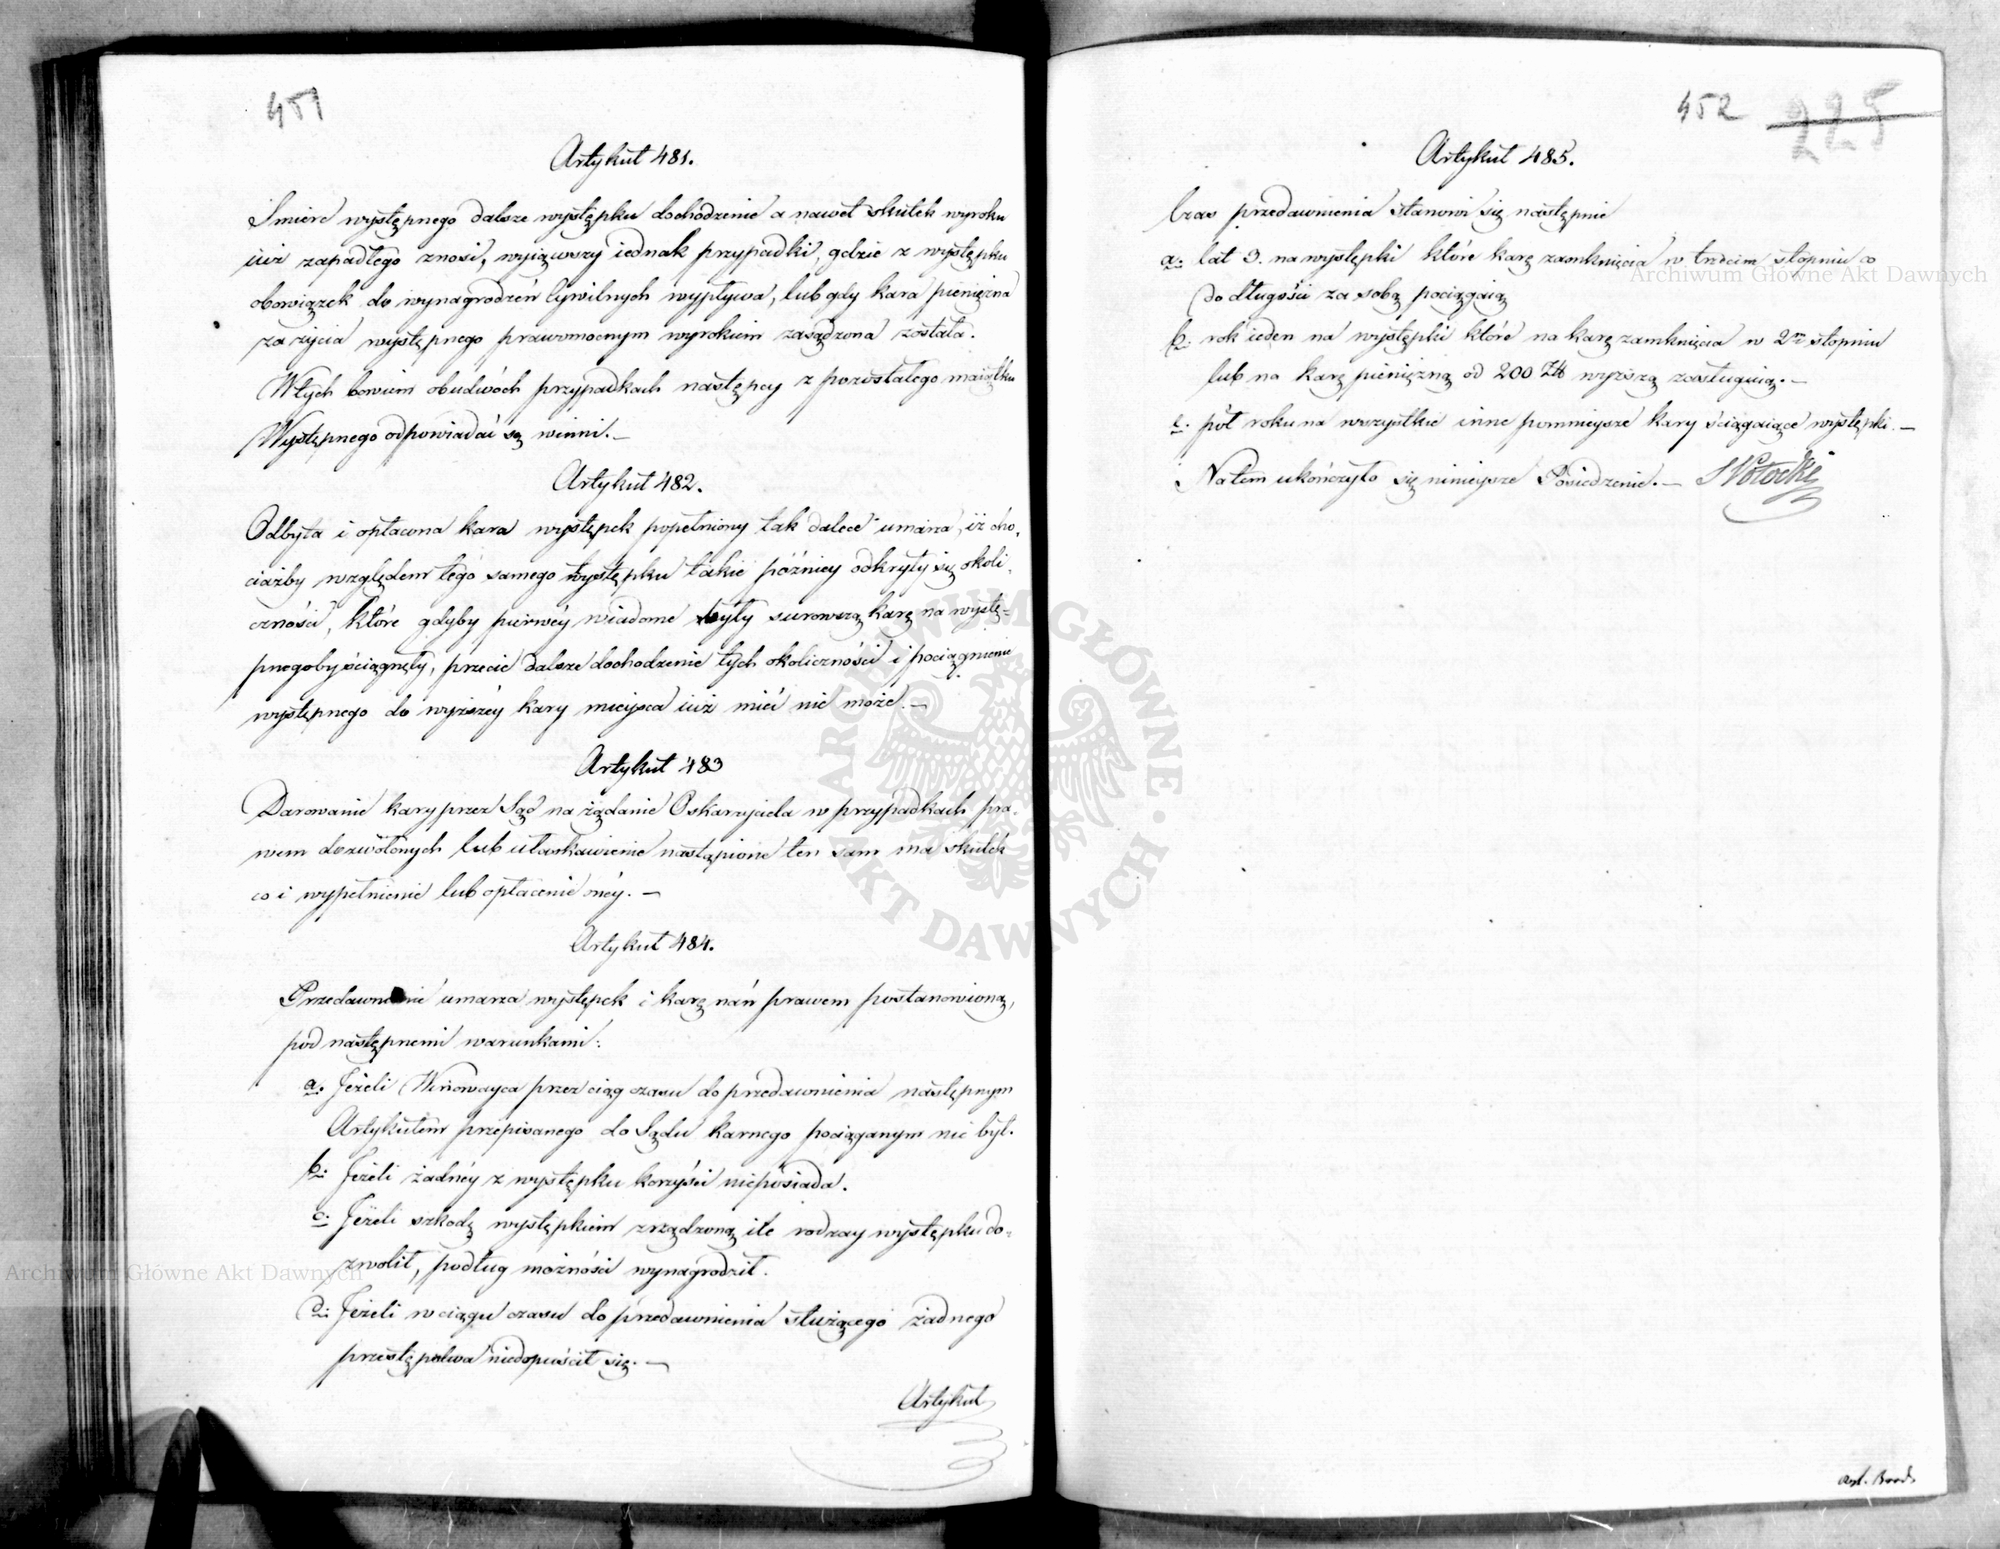 451
Artykuł 481.
Śmierć występnego dalsze występku dochodzenie a nawet skutek wyroku
iuż zapadłego znosi, wyiąwszy iednak przypadki, gdzie z występku
obowiązek do wynagrodzeń Cywilnych wypływa, lub gdy kara pieniężna
za życia występnego prawomocnym wyrokiem zasądzona została.
W tych bowiem obudwóch przypadkach następcy z pozostałego maiątku
Występnego odpowiadać są winni. —
Artykuł 482.
Odbyta i opłacona kara występek popełniony tak dalece umarza, iż cho,
ciażby względem tego samego występku takie późniey odkryły się okoli,
czności, które gdyby pierwéy wiadome były surowszą karę na wystę=
pnego by ściągnęły, przecie dalsze dochodzenie tych okoliczności i pociągnienie
występnego do wyższéy kary mieysca iuż mieć nie może. —
Artykuł 483
Darowanie kary przez Sąd na żądanie Oskarzyciela w przypadkach pra,
wem dozwolonych lub ułaskawienie nastąpione ten sam ma skutek
co i wypełnienie lub opłacenie onéy. —
Artykuł 484.
Przedawnienie umarza występek i karę nań prawem postanowioną,
pod następnemi warunkami:
a. Jeżeli Winowayca przez ciąg czasu do przedawnienia następnym
Artykułem przepisanego do Sądu karnego pociąganym nie był.
b. Jeżeli żadnéy z występku korzyści nieposiada.
c. Jeżeli szkodę występkiem zrządzoną ile rodzay występku do=
zwolił, podług możności wynagrodził.
d. Jeżeli w ciągu czasu do przedawnienia służącego żadnego
przestępstwa niedopuścił się. —
Artykuł
452 225
Artykuł 485.
Czas przedawnienia stanowi się następnie
a. lat 3. na występki które karę zamknięcia w trzecim stopniu co
do długości za sobą pociągaią
b. rok ieden na występki które na karę zamknięcia w 2m stopniu
lub na karę pieniężną od 200 Zł wyższą zasługuią. —
c. pół roku na wszystkie inne pomnieysze kary ściągaiące występki. —
Na tem ukończyło się ninieysze Posiedzenie. — S Potocki
Archiwum Główne Akt Dawnych
Archiwum Główne Akt Dawnych
ARCHIWUM GŁÓWNE · AKT DAWNYCH ·